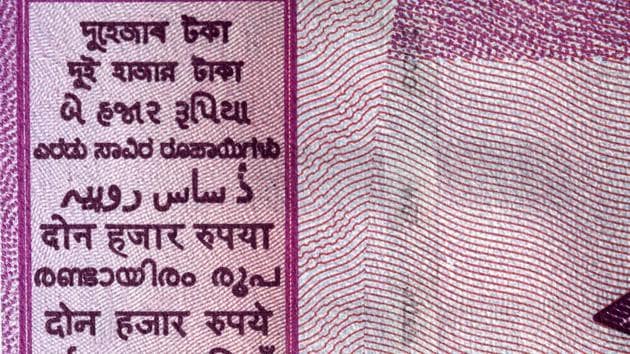 দুহেজাৰ টকা
দুই হাজার টাকা
બે હજાર રૂપિયા
ಎರಡು ಸಾವಿರ ರೂಪಾಯಿಗಳು
ساس روپیہ
दोन हजार रुपया
രണ്ടായിരം രൂപ
दोन हजार रुपये